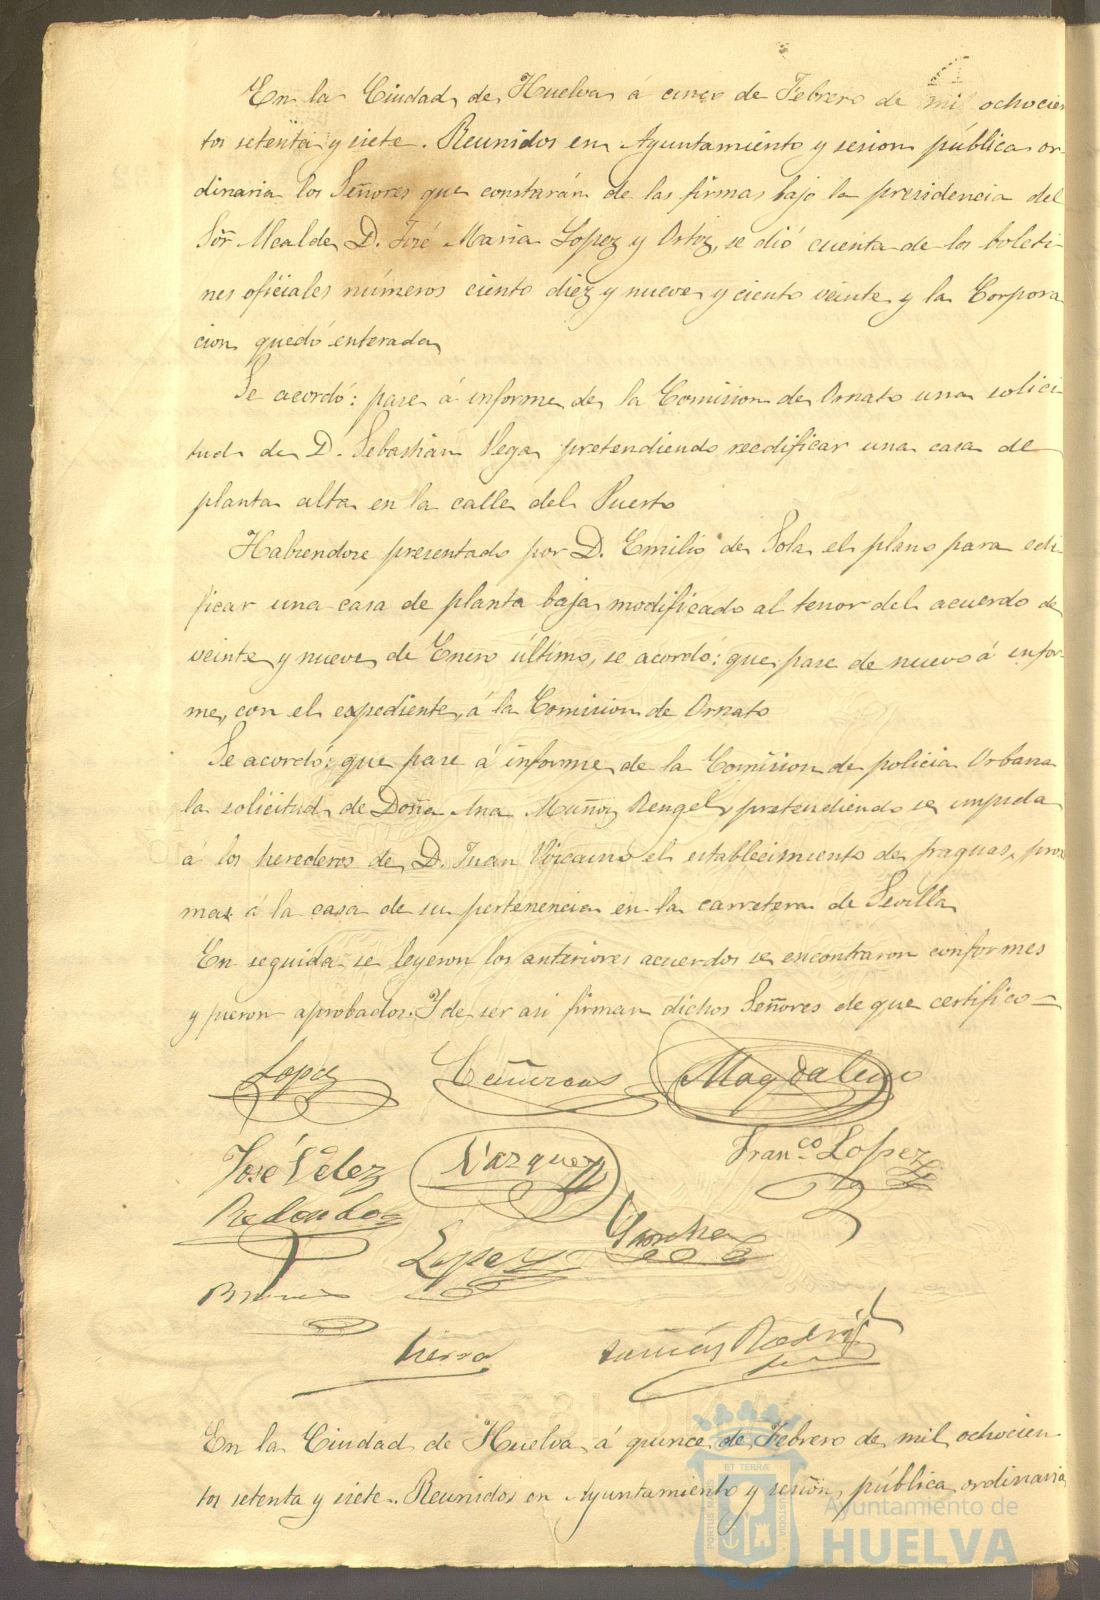 En la Ciudad de Huelva á cinco de Febrero de mil ochocien
tos setenta y siete. Reunidos en Ayuntamiento y sesion pública or-
dinaria los Señores que constarán de las firmas bajo la presidencia del
Sõr Alcalde D. José Maria Lopez y Ortiz, se dió cuenta de los boleti-
nes oficiales números ciento diez y nueve y ciento veinte y la Corpora
cion quedó enterada
Se acordó: pase á informe de la Comision de Ornato una solici-
tud de D. Sebastián Vega pretendiendo reedificar una casa de
planta alta en la calle del Puerto
Habiendose presentado por D. Emilio de Sola el plano para edi-
ficar una casa de planta baja modificado al tenor del acuerdo de
veinte y nueve de Enero último, se acordó: que pase de nuevo á infor-
me, con el expediente, á la Comision de Ornato
Se acordó: que pase á informe de la Comision de policia Urbana
la solicitud de Doña Ana Muñoz Rengel pretendiendo se impida
á los herederos de D. Juan Vizcaino el establecimiento de fraguas, proxi
mas á la casa de su pertenencia en la carretera de Sevilla
En seguida se leyeron los anteriores acuerdos se encontraron conformes
y fueron aprobados. Y de ser asi firman dichos Señores de que certifico=
Lopez Magdaleno
José Velez Vazquez Fran.co Lopez
Redondo
Lopez
Tomás Rodri
En la Ciudad de Huelva á quince de Febrero de mil ochocien
tos setenta y siete. Reunidos en Ayuntamiento y sesion pública ordinaria
Ayuntamiento de
HUELVA